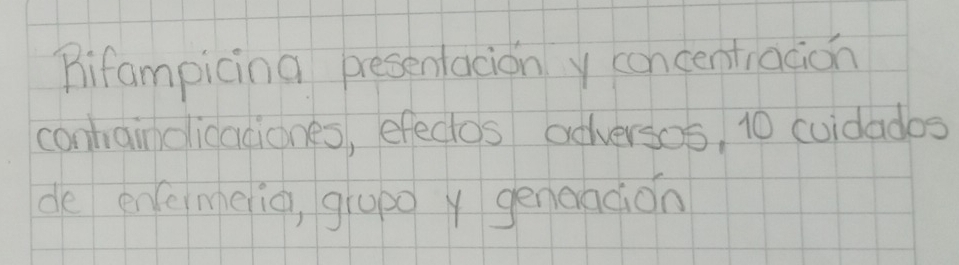 Rifampicina presentación y concentración
contraindicaciones, efectos adversos, 10 cuidados
de enfermeria, grupo y generación